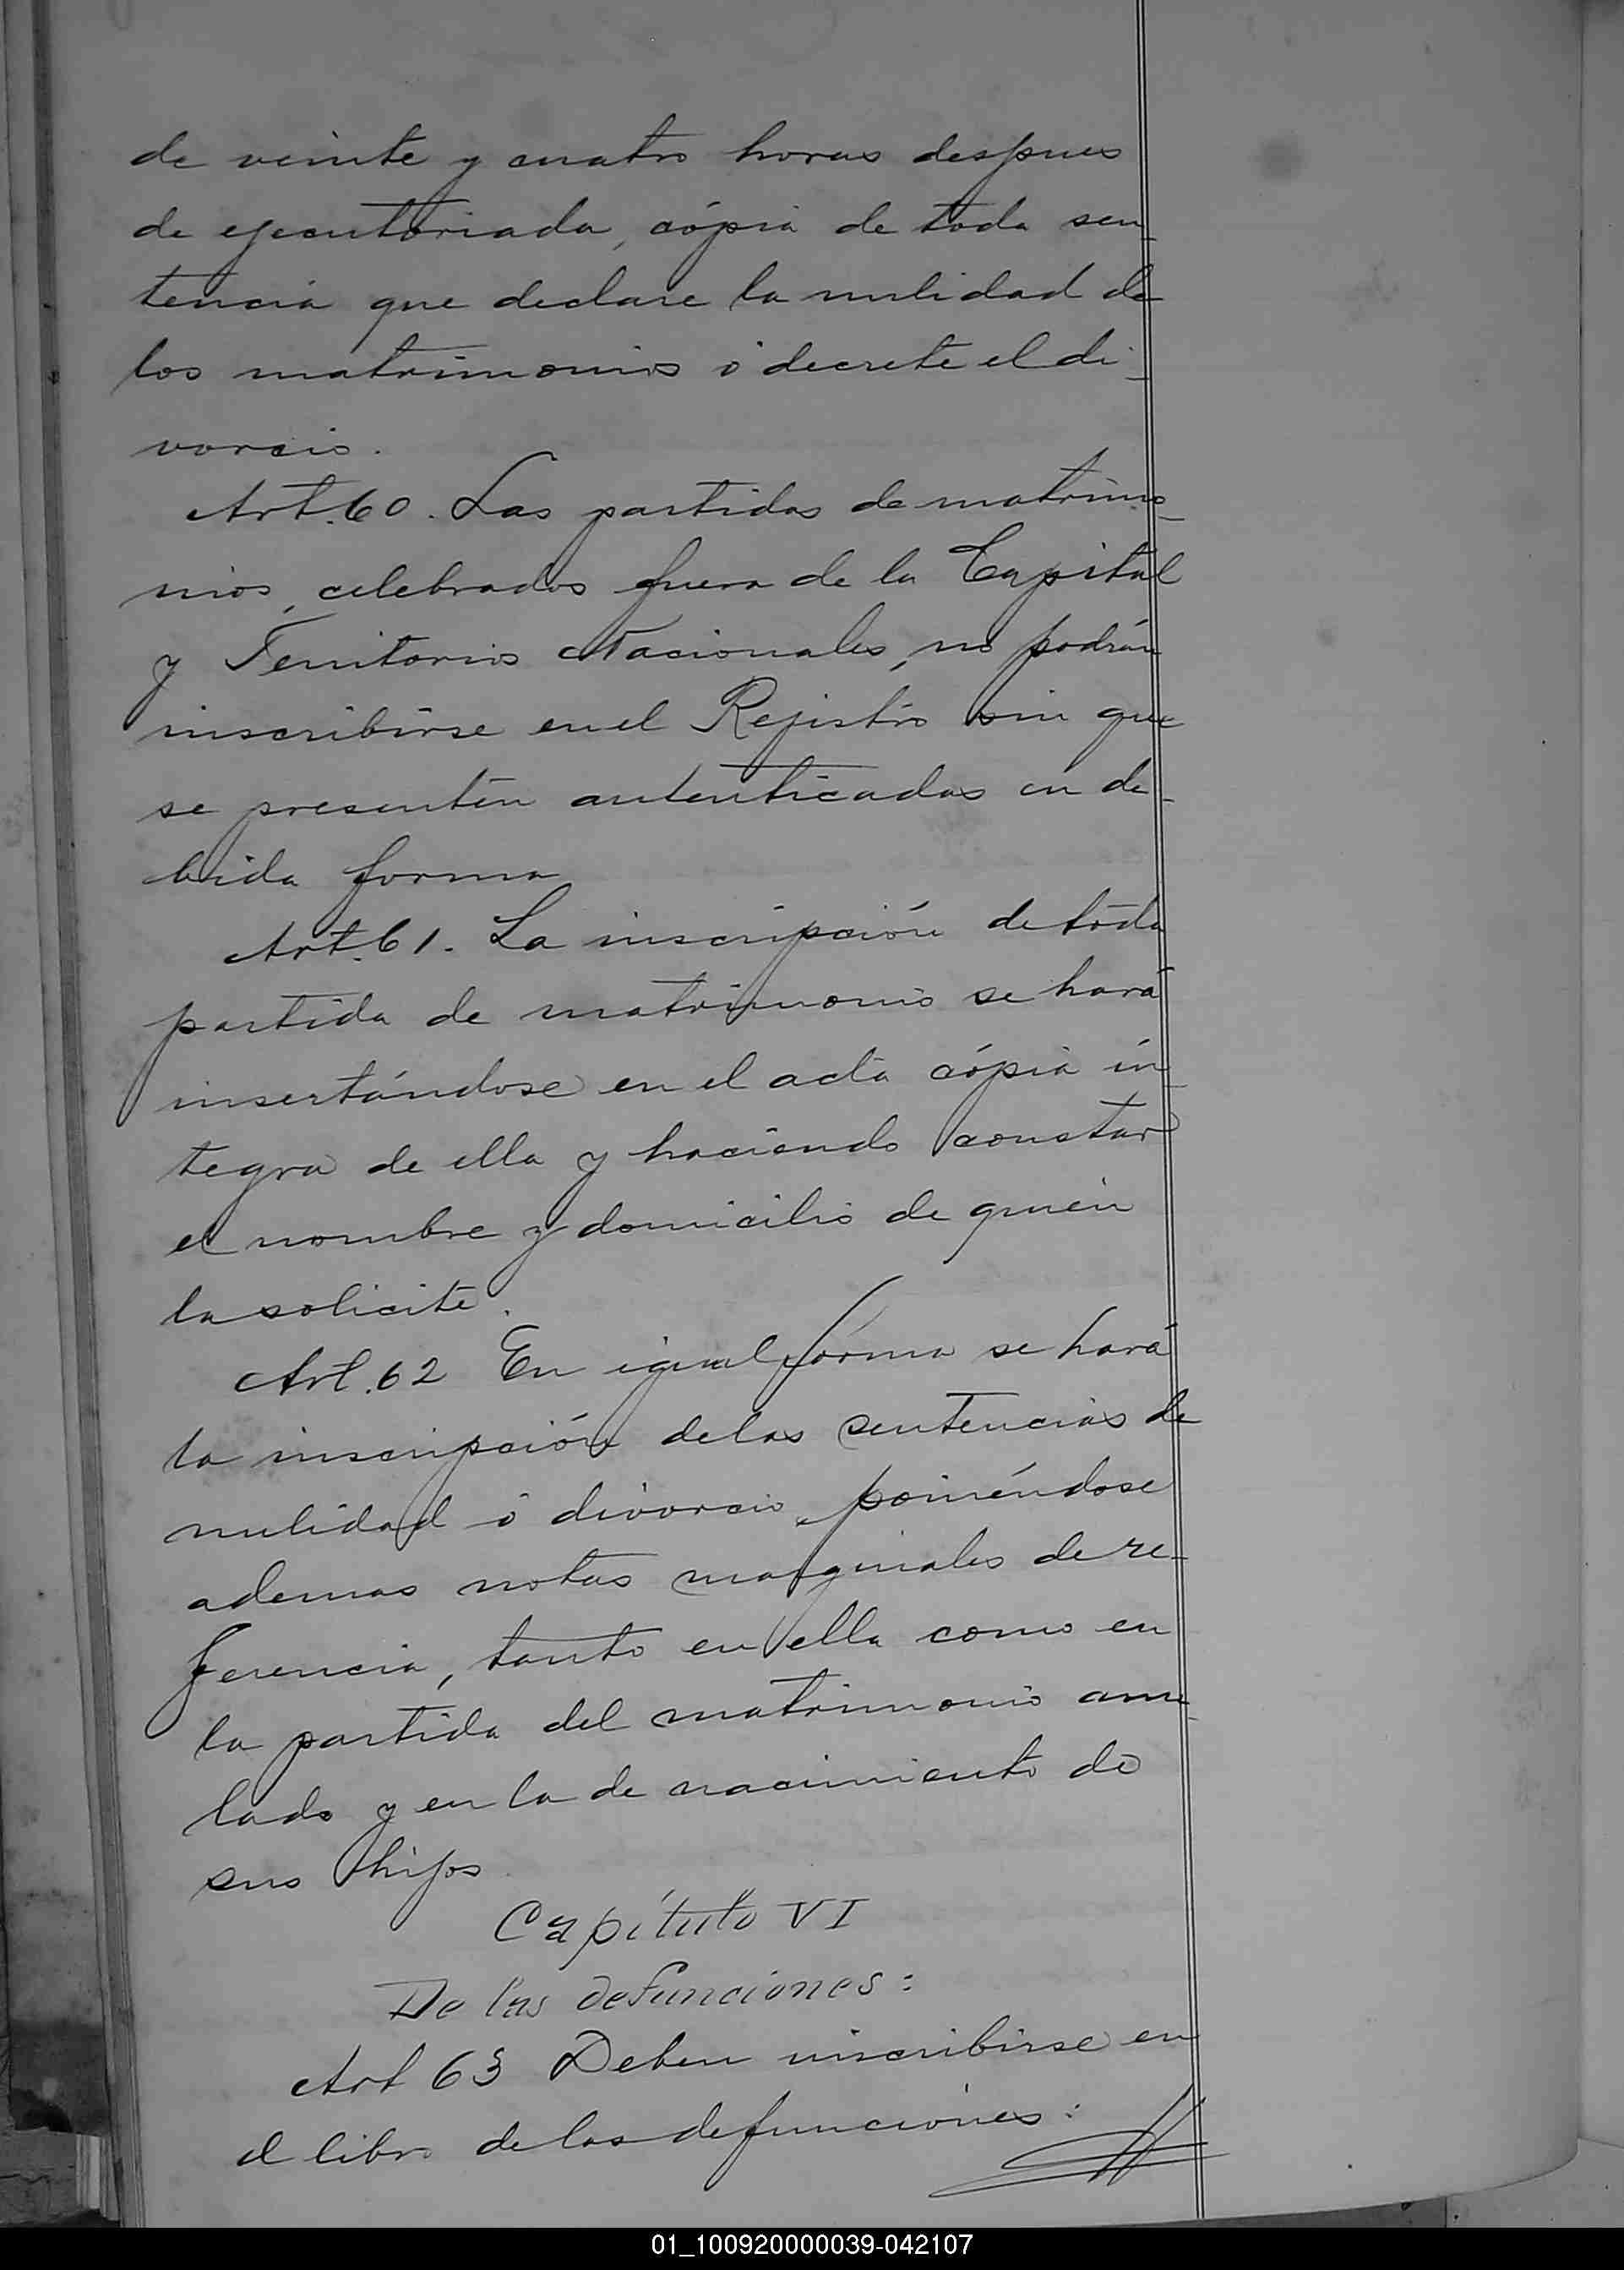 de veinte y cuatro horas despues
de ejecutoriada, cópia de toda sen-
tencia que declare la nulidad de
los matrimonios ó decrete el di-
vorcio.
Art. 60. Las partidas de matrimo-
nios, celebrados fuera de la Capital
y Territorios Nacionales, no podrán
inscribirse en el Rejistro sin que
se presenten autenticadas en de-
bida forma
Art. 61. La inscripción de toda
partida de matrimonio se hará
insertándose en el acta cópia ín
tegra de ella y haciendo constar
el nombre y domicilio de quien
la solicite.
Art. 62 En igual forma se hará
la inscripción de las sentencias de
nulidad ó divorcio, poniéndose
ademas notas marginales de re-
ferencia, tanto en ella como en
la partida del matrimonio anu-
lado y en la de nacimiento de
sus hijos
Capítulo VI
De las defunciones:
Art 63 Deben inscribirse en
el libro de las defunciones:
01_100920000039-042107